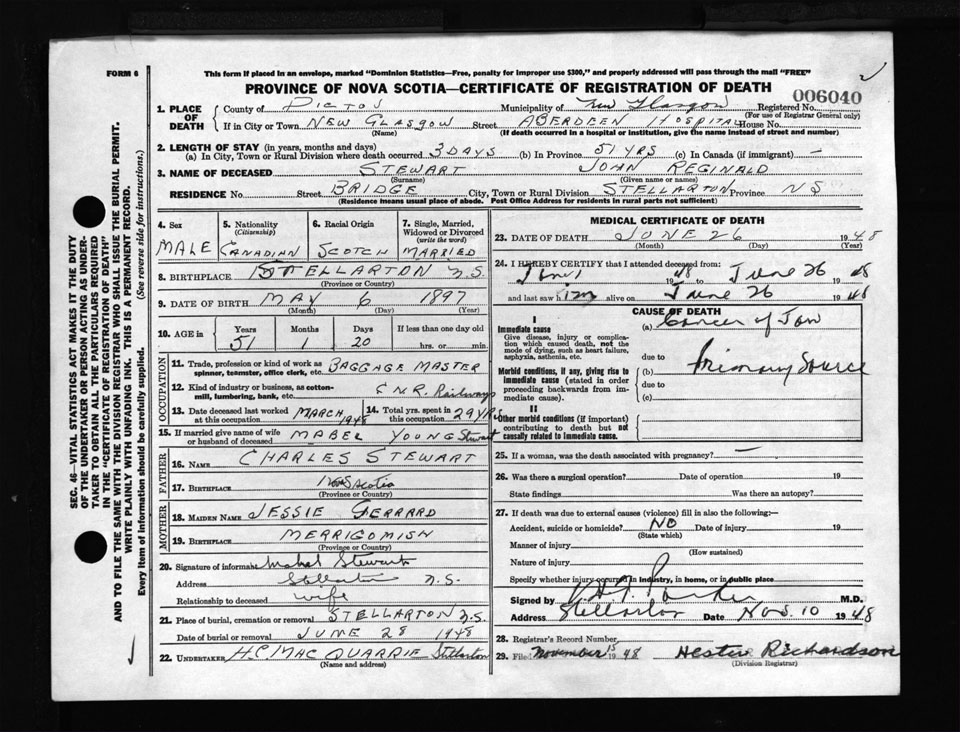 FORM 6
This form if placed in an envelope, marked "Dominion Statistics—Free, penalty for improper use $300," and properly addressed will pass through the mail "FREE"
PROVINCE OF NOVA SCOTIA—CERTIFICATE OF REGISTRATION OF DEATH
006040
1. PLACE OF DEATH
County of PICTOU Municipality of New Glasgow Registered No.
(For use of Registrar General only)
If in City or Town NEW GLASGOW Street ABERDEEN HOSPITAL House No.
(Name) (If death occurred in a hospital or institution, give the name instead of street and number)
2. LENGTH OF STAY (in years, months and days)
(a) In City, Town or Rural Division where death occurred 3 DAYS (b) In Province 51 YRS (c) In Canada (if immigrant) —
3. NAME OF DECEASED STEWART JOHN REGINALD
(Surname) (Given name or names)
RESIDENCE No. Street BRIDGE City, Town or Rural Division STELLARTON Province N S
(Residence means usual place of abode. Post Office Address for residents in rural parts not sufficient)
4. Sex MALE
5. Nationality (Citizenship) CANADIAN
6. Racial Origin SCOTCH
7. Single, Married, Widowed or Divorced (write the word) MARRIED
8. BIRTHPLACE STELLARTON N.S.
(Province or Country)
9. DATE OF BIRTH MAY 6 1897
(Month) (Day) (Year)
10. AGE in Years 51 Months 1 Days 20 If less than one day old hrs. or min.
OCCUPATION
11. Trade, profession or kind of work as spinner, teamster, office clerk, etc. BAGGAGE MASTER
12. Kind of industry or business, as cotton-mill, lumbering, bank, etc. C N R. Railways
13. Date deceased last worked at this occupation MARCH 1948
14. Total yrs. spent in this occupation 29 YRS
15. If married give name of wife or husband of deceased MABEL YOUNG Stewart
FATHER
16. NAME CHARLES STEWART
17. BIRTHPLACE Nova Scotia
(Province or Country)
MOTHER
18. MAIDEN NAME JESSIE GERRARD
19. BIRTHPLACE MERRIGOMISH
(Province or Country)
20. Signature of informant Mabel Stewart
Address Stellarton N.S.
Relationship to deceased wife
21. Place of burial, cremation or removal STELLARTON N.S.
Date of burial or removal JUNE 28 1948
22. UNDERTAKER H.C. MACQUARRIE Stellarton
(Name and address)
MEDICAL CERTIFICATE OF DEATH
23. DATE OF DEATH JUNE 26 1948
(Month) (Day) (Year)
24. I HEREBY CERTIFY that I attended deceased from:
1948 to June 26 1948
and last saw him alive on June 26 1948
CAUSE OF DEATH
I
Immediate cause (a) Cancer of Jaw
Give disease, injury or complication which caused death, not the mode of dying, such as heart failure, asphyxia, asthenia, etc.
due to
Morbid conditions, if any, giving rise to immediate cause (stated in order proceeding backwards from immediate cause). (b) Primary Source
due to
(c)
II
Other morbid conditions (if important) contributing to death but not causally related to immediate cause.
25. If a woman, was the death associated with pregnancy? —
26. Was there a surgical operation? Date of operation 19
State findings Was there an autopsy?
27. If death was due to external causes (violence) fill in also the following:—
Accident, suicide or homicide? NO Date of injury 19
(State which)
Manner of injury
(How sustained)
Nature of injury
Specify whether injury occurred in industry, in home, or in public place
Signed by Parker M.D.
Address Stellarton Date Nov. 10 1948
28. Registrar's Record Number
29. Filed November 15 1948 Hester Richardson
(Division Registrar)
SEC. 46—VITAL STATISTICS ACT MAKES IT THE DUTY
OF THE UNDERTAKER OR PERSON ACTING AS UNDERTAKER TO OBTAIN ALL THE PARTICULARS REQUIRED
IN THE "CERTIFICATE OF REGISTRATION OF DEATH"
AND TO FILE THE SAME WITH THE DIVISION REGISTRAR WHO SHALL ISSUE THE BURIAL PERMIT.
WRITE PLAINLY WITH UNFADING INK. THIS IS A PERMANENT RECORD.
Every item of information should be carefully supplied. (See reverse side for instructions.)